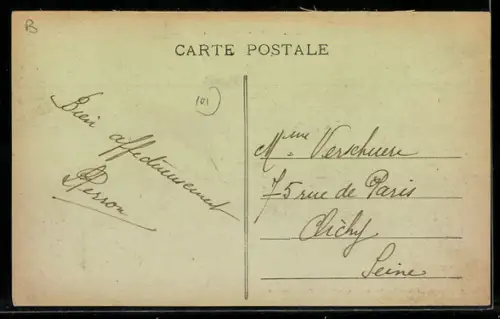 B
CARTE POSTALE
101
Bien affectueusement
Perron
Mme Verschuere
75 rue de Paris
Clichy
Seine